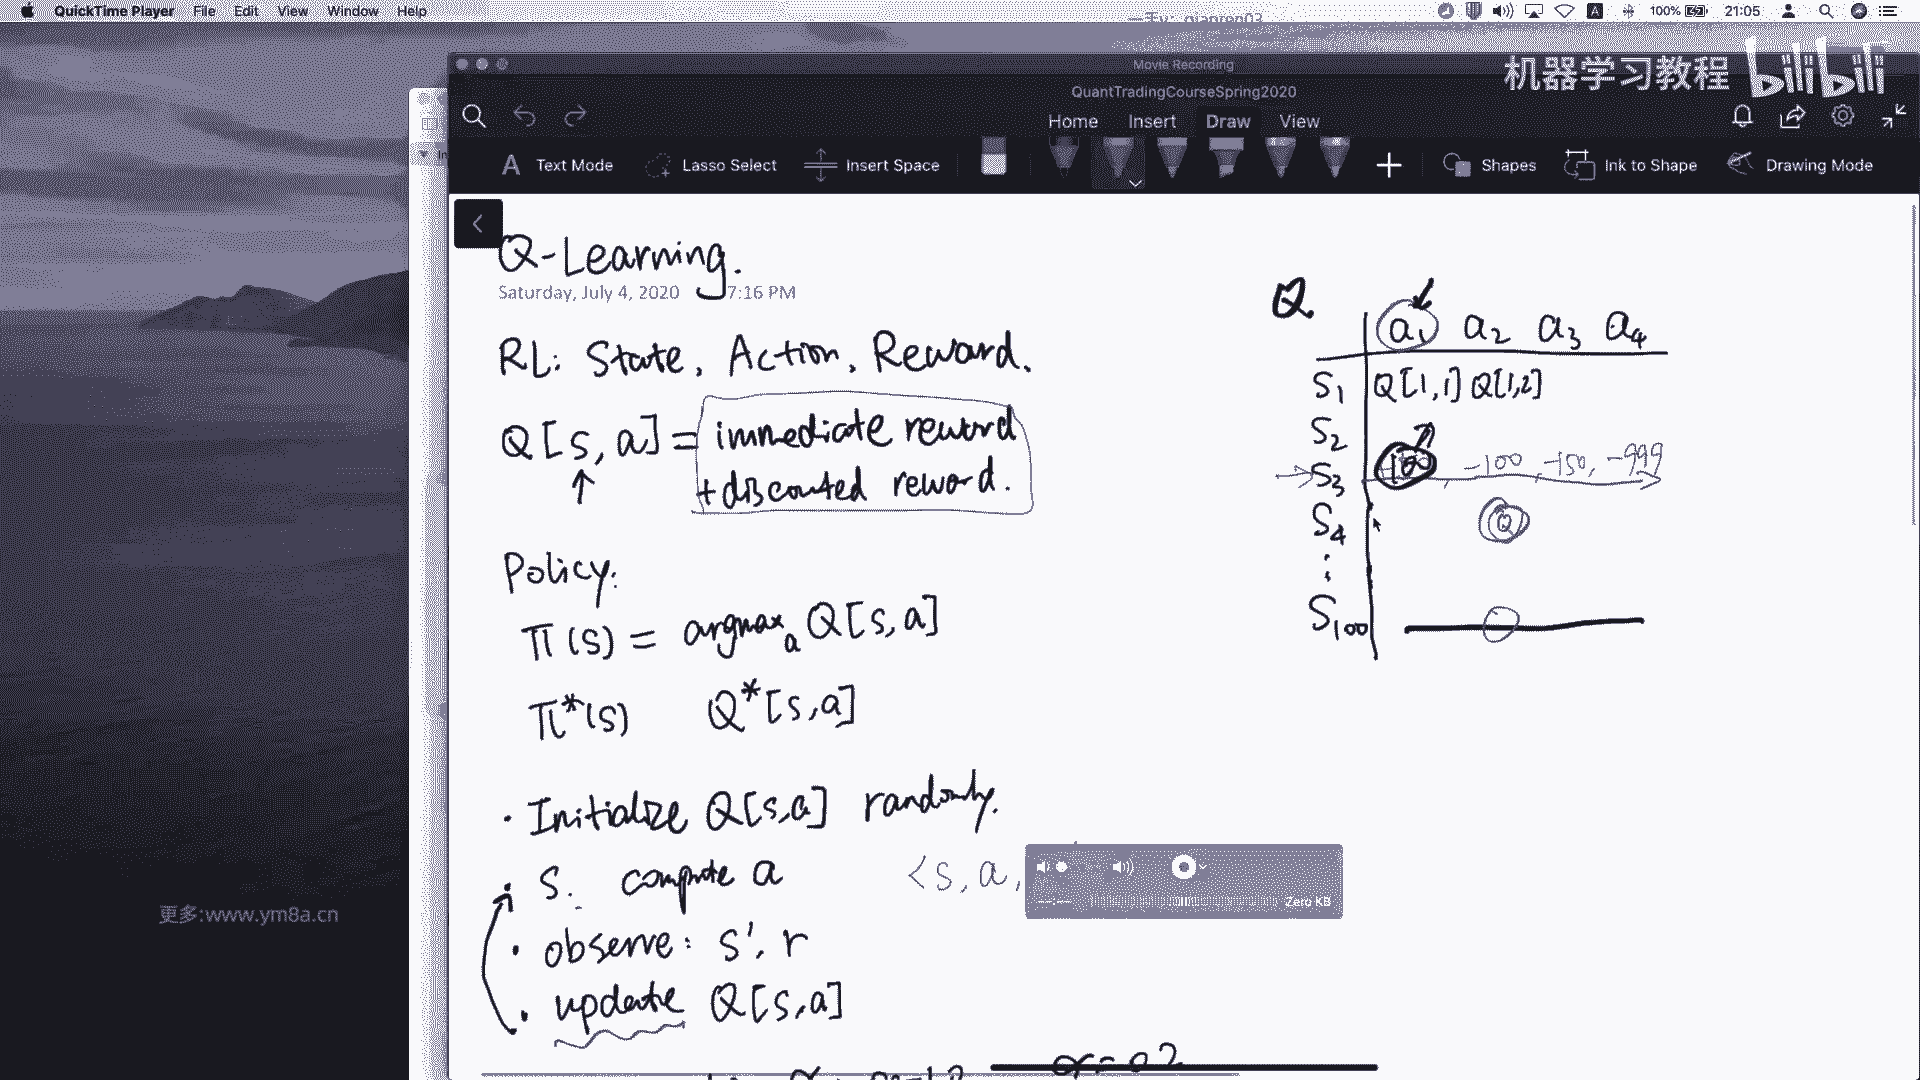 QuickTime Player File Edit View Window Help
100% 21:05
Movie Recording
机器学习教程 bilibili
QuantTradingCourseSpring2020
Home Insert Draw View
Text Mode Lasso Select Insert Space Shapes Ink to Shape Drawing Mode
Q-Learning.
Saturday, July 4, 2020 7:16 PM
RL: State, Action, Reward.
Q[s,a] = immediate reword
+discounted reword.
Policy:
π(s) = argmax a Q[s,a]
π*(s) Q*[s,a]
· Initialize Q[s,a] randomly.
· s. compute a <s, a,
· observe: s', r
· update Q[s,a]
Q
a1 a2 a3 a4
S1 Q[1,1] Q[1,2]
S2
S3 100 -100, -150, -999
S4 Q
⋮
S100
Zero KB
更多:www.ym8a.cn